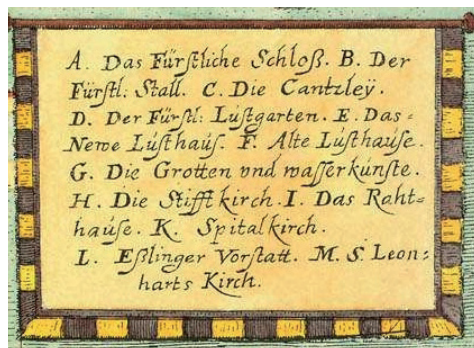 A. Das Fürstliche Schloß. B. Der
Fürstl: Stall. C. Die Cantzleÿ.
D. Der Fürstl: Lustgarten. E. Das-
Newe Lusthauß. F. Alte Lusthause.
G. Die Grotten vnd wasserkünste.
H. Die Stifftkirch. I. Das Raht=
hause. K. Spitalkirch.
L. Eßlinger Vorstatt. M. S. Leon=
harts Kirch.